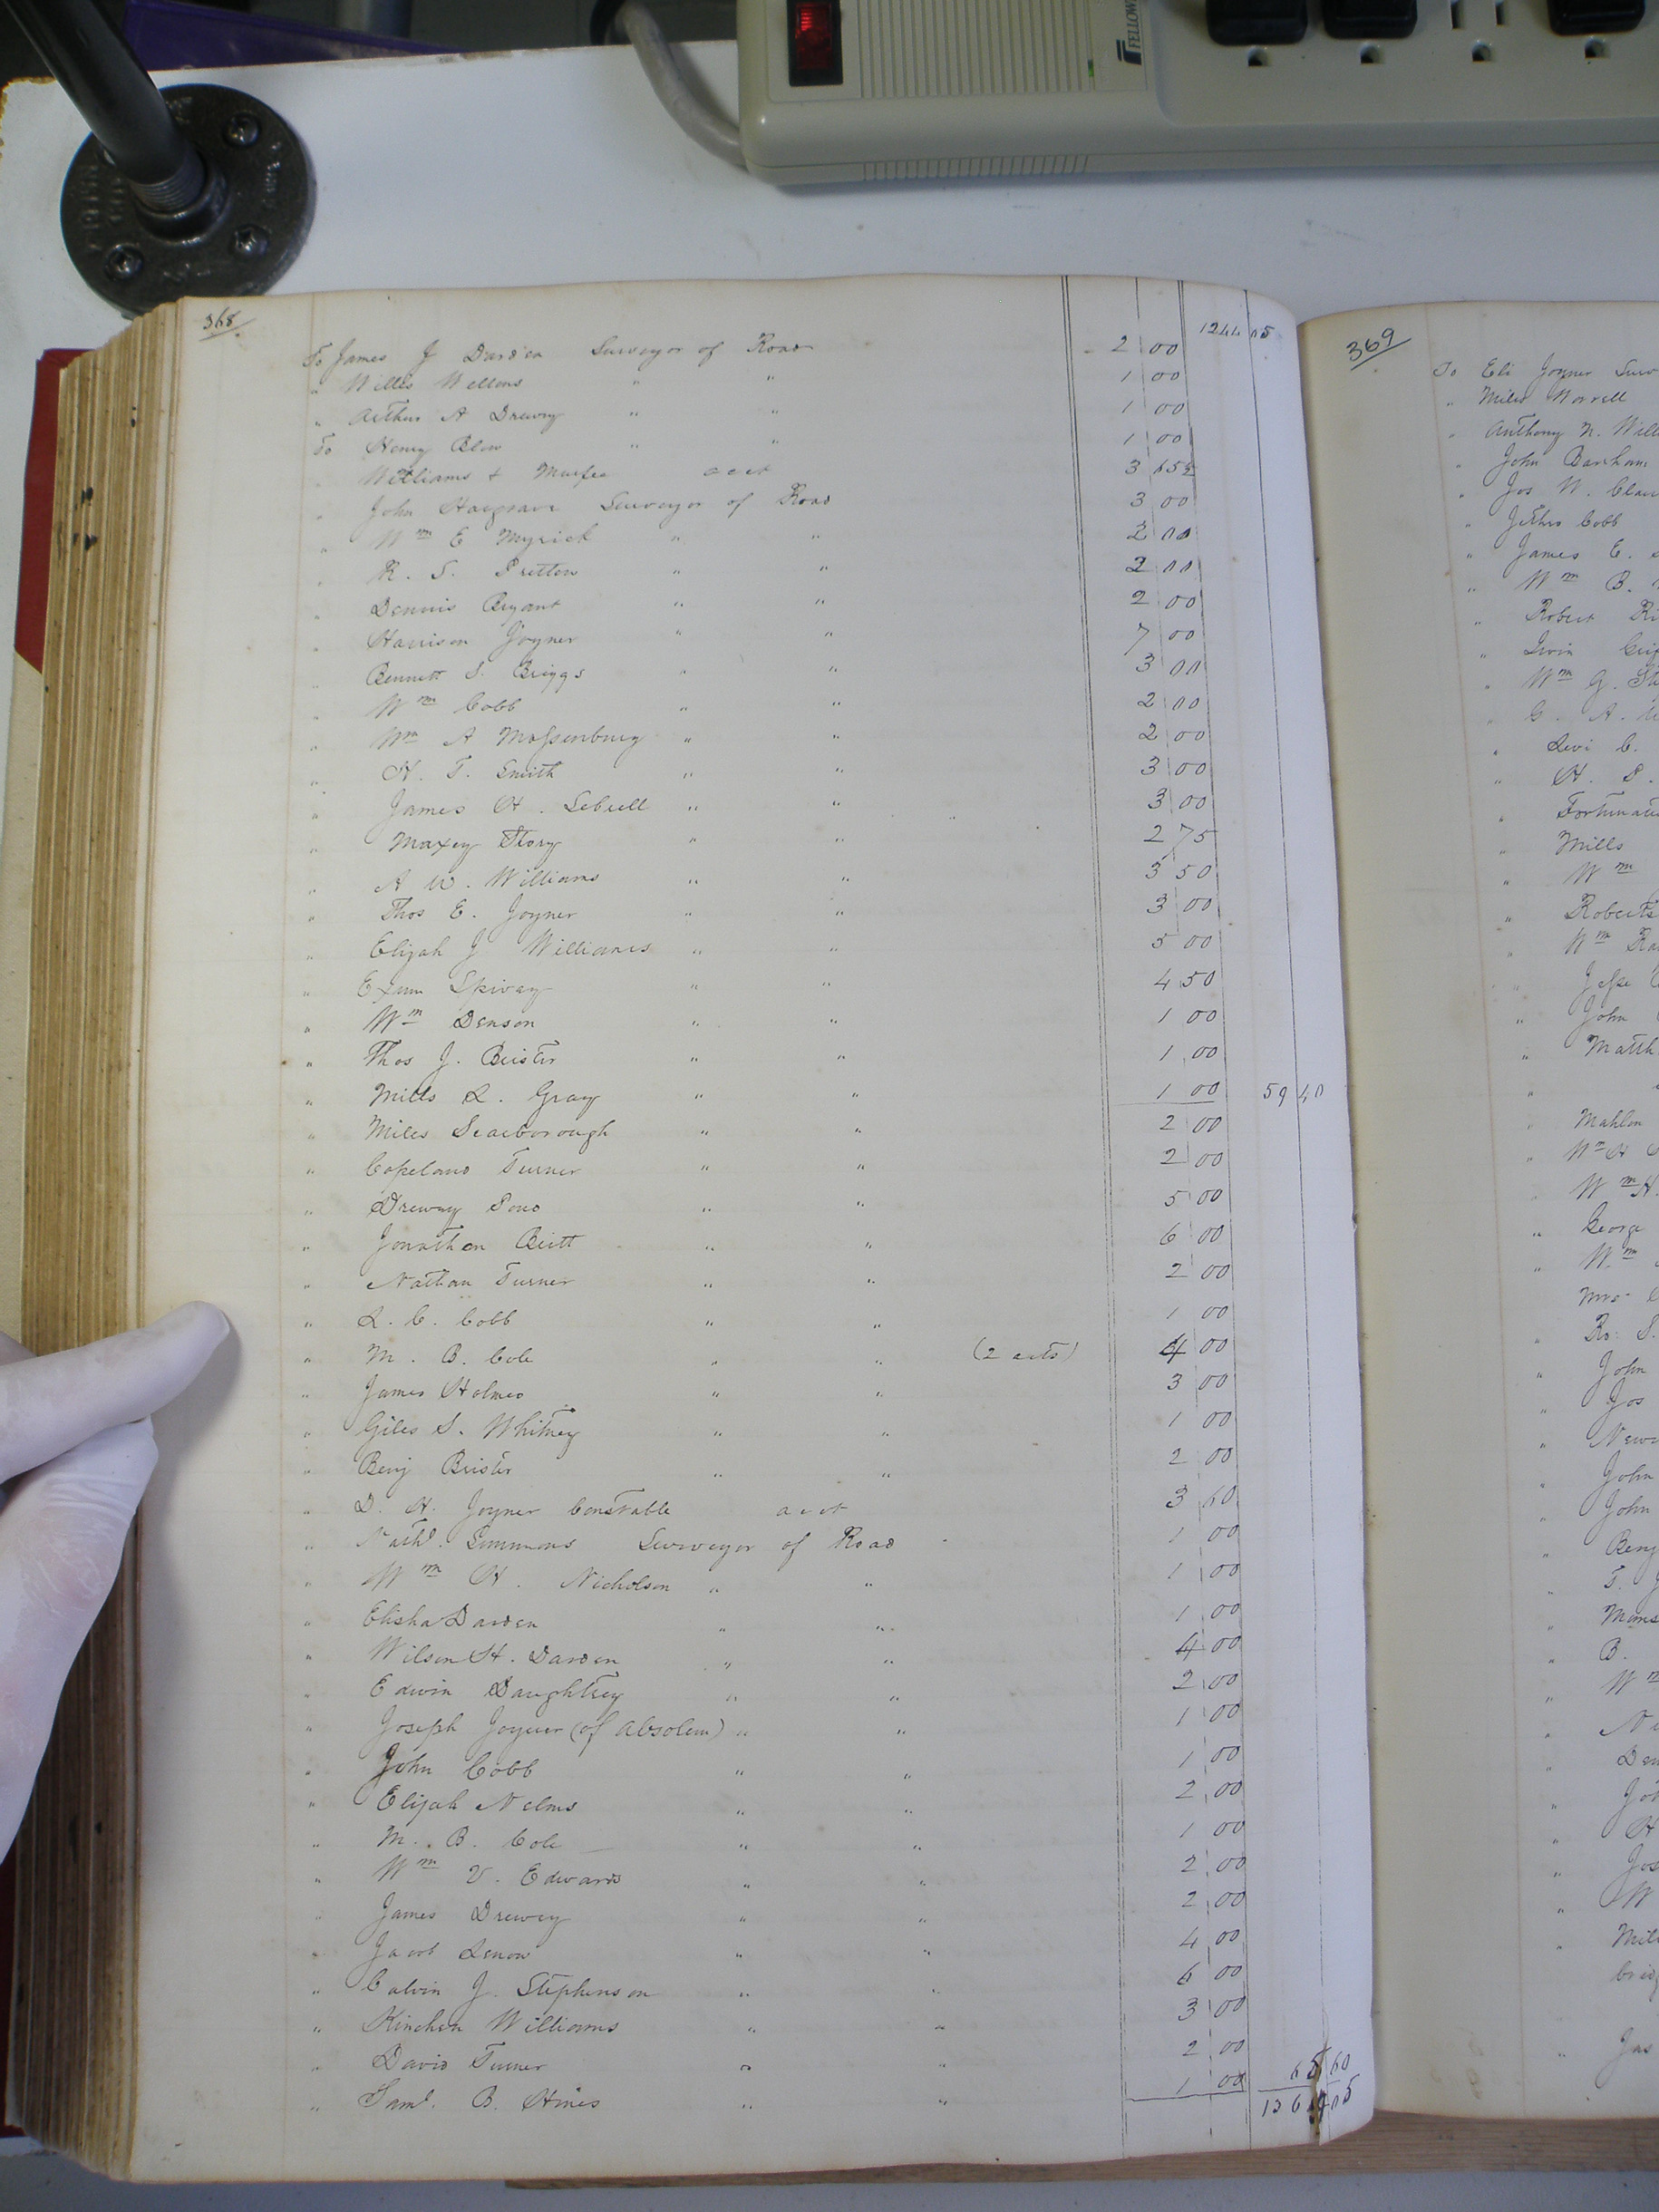 FELLOW
368
1244 05
To James J Darden Surveyor of Road 2 00
" Willis Wellons " " 1 00
" Arthur A Drewry " " 1 00
To Henry Blow " " 1 00
" Williams & Murfee acct 3 65
" John Hargrave Surveyor of Road 3 00
" Wm E Myrick " " 2 00
" R. S. Pretlow " " 2 00
" Dennis Bryant " " 2 00
" Harrison Joyner " " 7 00
" Bennett S. Briggs " " 3 00
" Wm Cobb " " 2 00
" Wm A Massenburg " " 2 00
" H. T. Smith " " 3 00
" James H. Sebrell " " 3 00
" Maxey Story " " 2 75
" A W. Williams " " 3 50
" Thos E. Joyner " " 3 00
" Elijah J Williams " " 5 00
" Exum Spivey " " 4 50
" Wm Denson " " 1 00
" Thos J. Brister " " 1 00
" Mills L. Gray " " 1 00 59 40
" Miles Scarborough " " 2 00
" Copeland Turner " " 2 00
" Drewry Pond " " 5 00
" Jonathan Britt " " 6 00
" Nathan Turner " " 2 00
" L. C. Cobb " " 1 00
" M. B. Cole " " (2 acts) 4 00
" James Holmes " " 3 00
" Giles S. Whitney " " 1 00
" Benj Brister " " 2 00
" D. H. Joyner Constable acct 3 60
" Nathl. Simmons Surveyor of Road 1 00
" Wm H. Nicholson " " 1 00
" Elisha Darden " " 1 00
" Wilson H. Darden " " 4 00
" Edwin Daughtrey " " 2 00
" Joseph Joyner (of Absolem) " " 1 00
" John Cobb " " 1 00
" Elijah Nelms " " 2 00
" M. B. Cole " " 1 00
" Wm V. Edwards " " 2 00
" James Drewry " " 2 00
" Jacob Lenow " " 4 00
" Calvin J. Stephenson " " 6 00
" Kinchen Williams " " 3 00
" David Turner " " 2 00
" Saml. B. Hines " " 1 00 65 60
1369 05
369
To Eli Joyner Surv
" Miles Norrell
" Anthony N. Will
" John Barham
" Jos W. Clau
" Jethro Cobb
" James E.
" Wm B.
" Robert Ri
" Irvin
" Wm G.
" G. A.
" Levi C.
" H. S.
" Fortunat
" Mills
" Wm
" Roberts
" Wm
" Jesse
" John
" Matth
"
" Mahlon
" Wm H
" Wm H.
" George
" Wm
Mrs.
" Ro: S.
" John
" Jos
" New
" John
" John
" Benj
" T. J
" Mans
" B.
" Wm
" N
" Den
" Joh
" H
" Jos
" W
" Mil
brid
" Jas